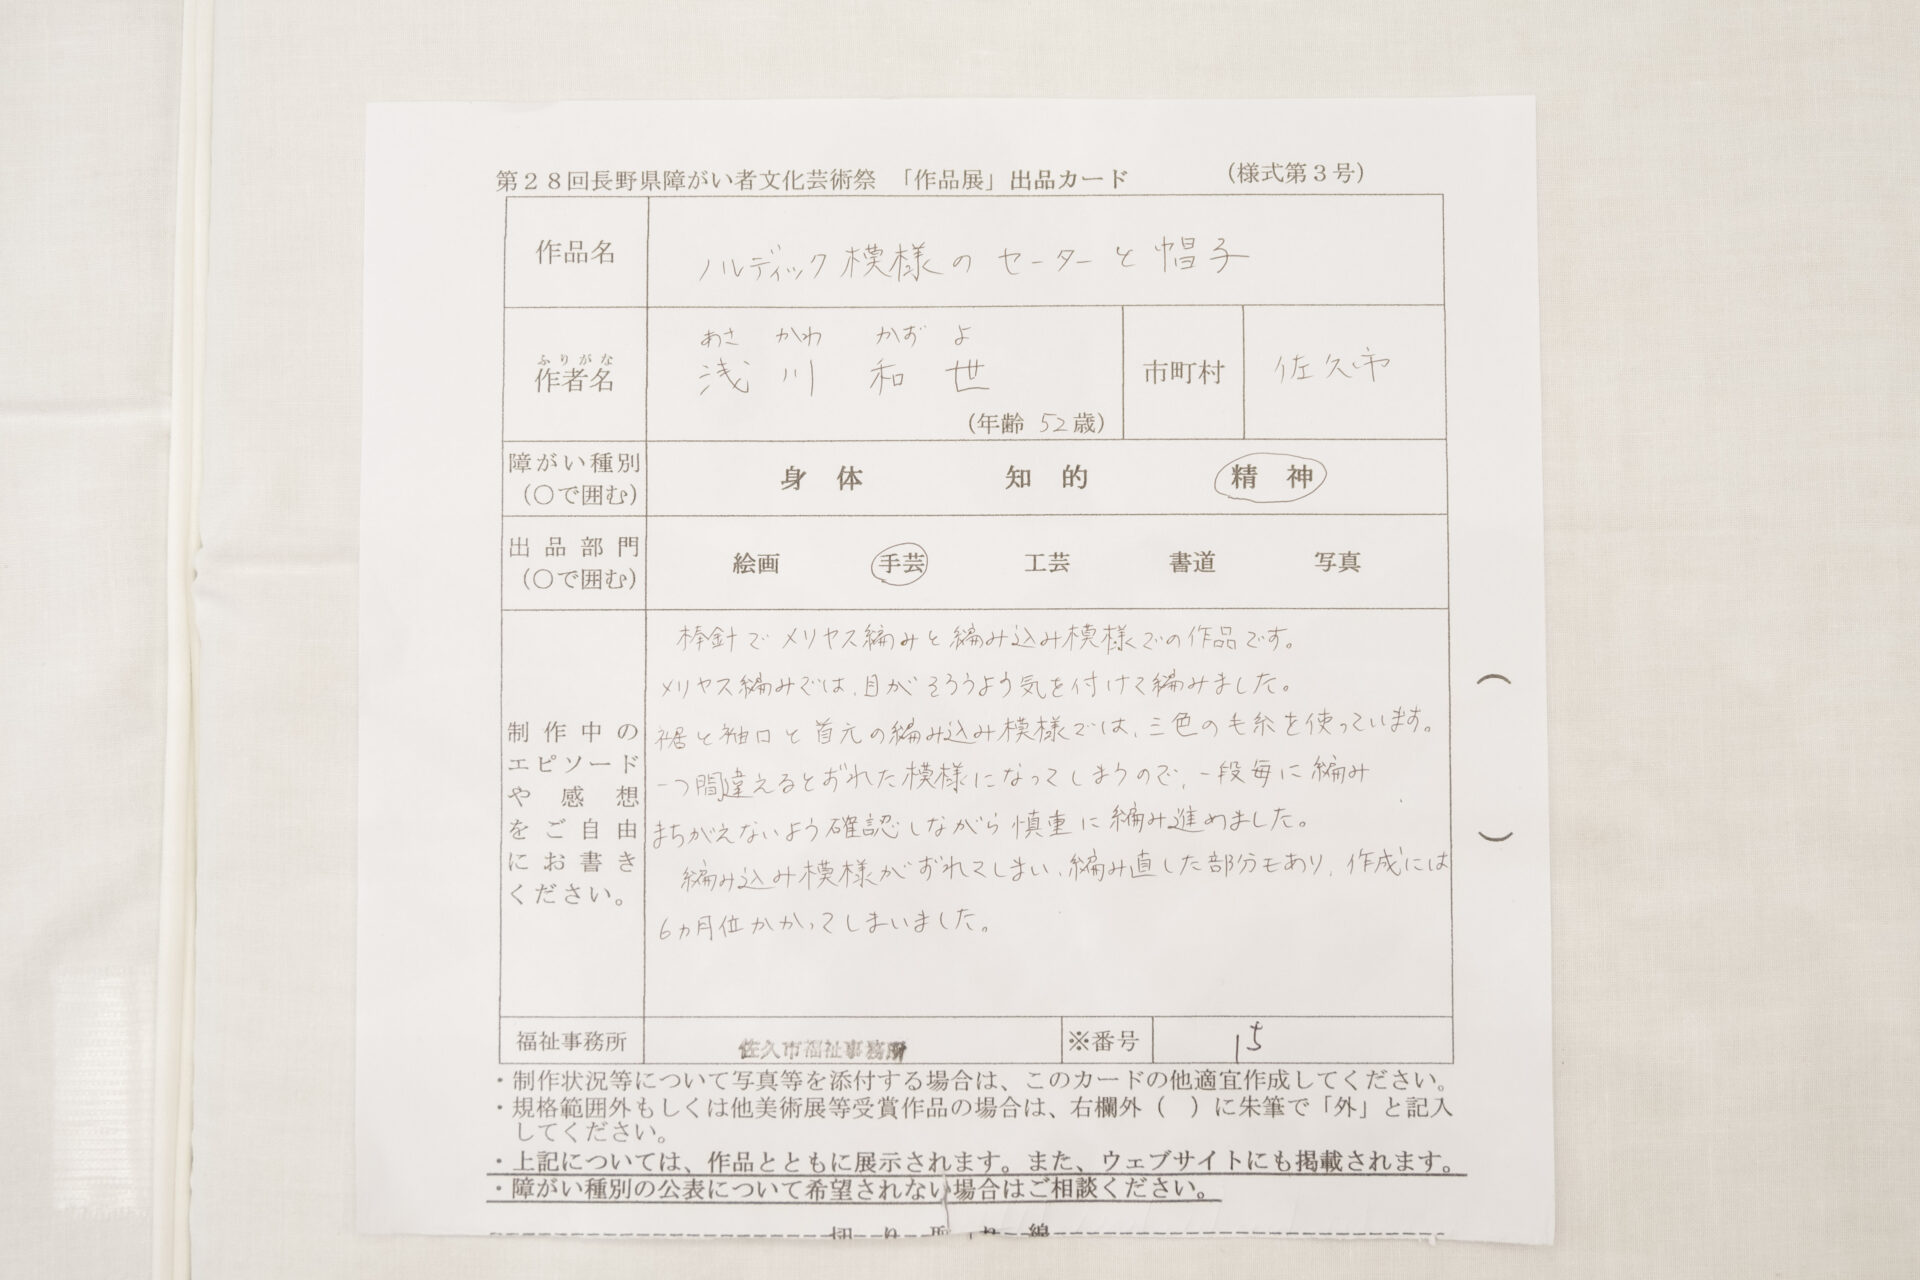 第２８回長野県障がい者文化芸術祭 「作品展」出品カード （様式第３号）
作品名
ノルディック模様のセーターと帽子
ふりがな
作者名
あさ かわ かず よ
浅 川 和 世
（年齢 52 歳）
市町村
佐久市
障がい種別
（○で囲む）
身 体 知 的 精 神
出品部門
（○で囲む）
絵画 手芸 工芸 書道 写真
制作中の
エピソード
や感想
をご自由
にお書き
ください。
棒針でメリヤス編みと編み込み模様での作品です。
メリヤス編みでは、目がそろうよう気を付けて編みました。
裾と袖口と首元の編み込み模様では、三色の毛糸を使っています。
一つ間違えるとずれた模様になってしまうので、一段毎に編み
まちがえないよう確認しながら慎重に編み進めました。
編み込み模様がずれてしまい、編み直した部分もあり、作成には
6ヵ月位かかってしまいました。
（ ）
福祉事務所
佐久市福祉事務所
※番号
15
・制作状況等について写真等を添付する場合は、このカードの他適宜作成してください。
・規格範囲外もしくは他美術展等受賞作品の場合は、右欄外（ ）に朱筆で「外」と記入
してください。
・上記については、作品とともに展示されます。また、ウェブサイトにも掲載されます。
・障がい種別の公表について希望されない場合はご相談ください。
切 り 取 り 線